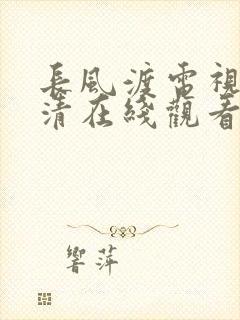 長風渡電視
清在綫觀看
響萍